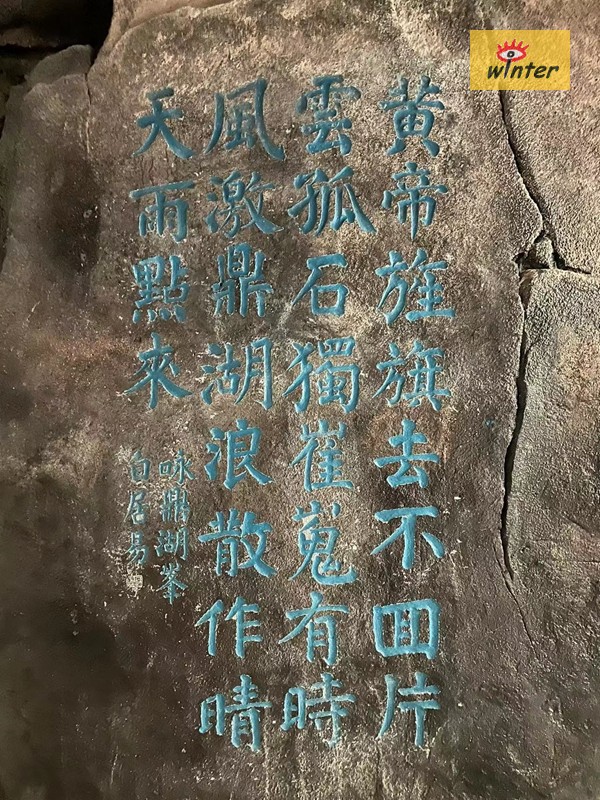 winter
黄帝旌旗去不回片
雲孤石獨崔嵬有時
風激鼎湖浪散作晴
天雨點來
咏鼎湖峯
白居易